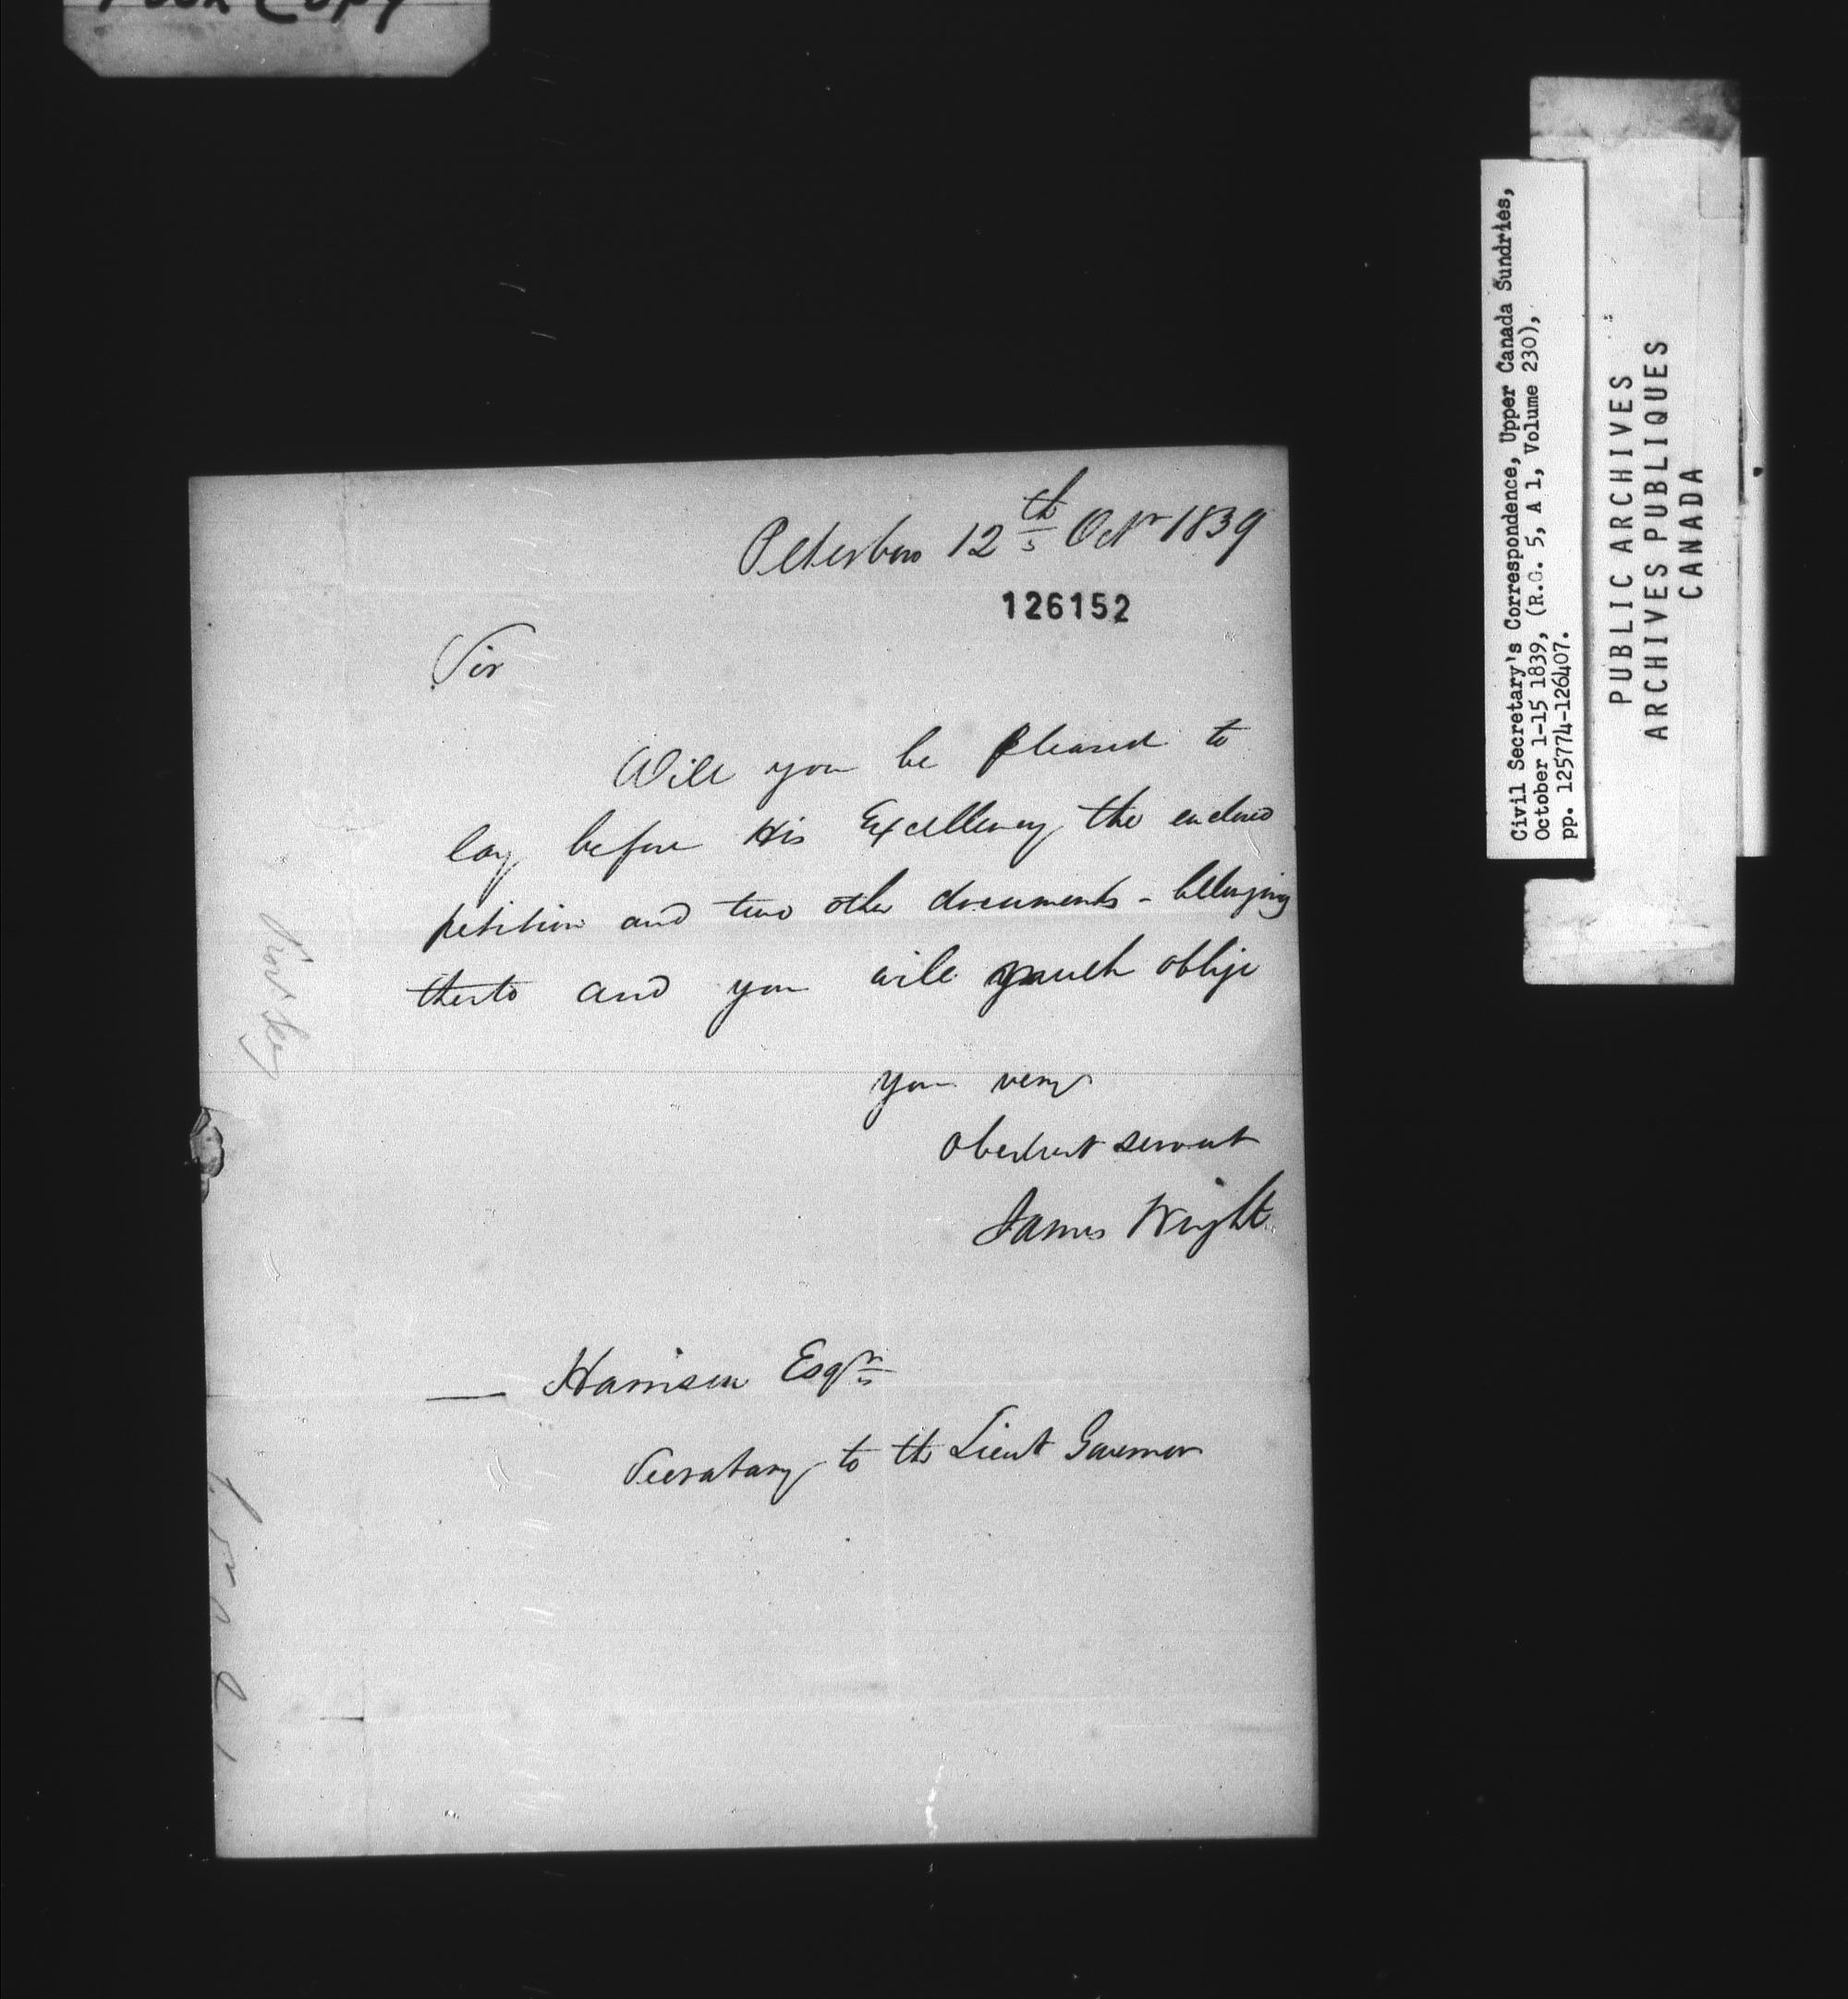 Poor Copy
Peterboro 12th Octr 1839
126152
Sir
Will you be pleased to
lay before His Excellency the enclosed
petition and two other documents - belonging
thereto and you will much oblige
your very
obedient servant
James Wright
Harrison Esqr
Secratary to the Lieut Governor
Civil Secretary's Correspondence, Upper Canada Sundries,
October 1-15 1839, (R.G. 5, A 1, Volume 230),
pp. 125774-126407.
PUBLIC ARCHIVES
ARCHIVES PUBLIQUES
CANADA